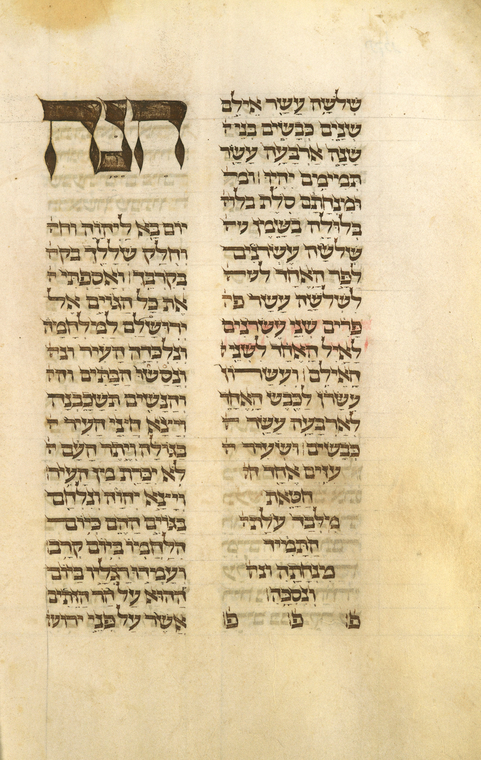 שלשה עשר אילם
שנים כבשים בני ה
שנה ארבעה עשר
תמימם יהיו ומ
ומנחתם סלת בלו
בלולה בשמן
שלשה עשרנים
לפר האחד לש
לשלשה עשר פר
פרים שני עשרנים
לאיל האחד לשני
האילם ועשרון
עשרון לכבש האחד
לארבעה עשר
כבשים ושעיר
עזים אחד
חטאת
מלבד עלת
התמיד
מנחתה ונ
ונסכה
פ פ פ
הנה
יום בא ליהוה וח
וחלק שללך בק
בקרבך ואספתי
את כל הגוים אל
ירושלם למלחמה
ונלכדה העיר ונ
ונשסו הבתים וה
והנשים תשכבנה
ויצא חצי העיר
בגולה ויתר העם
לא יכרת מן העיר
ויצא יהוה ונלחם
בגוים ההם כיום
הלחמו ביום קרב
ועמדו רגליו ביום
ההוא על הר הזיתים
אשר על פני ירוש